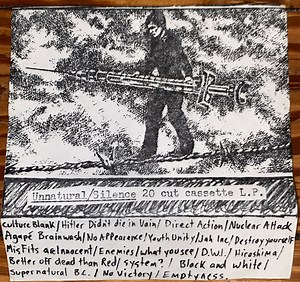 Unnatural/Silence 20 cut cassette L.P.
Culture Blank/Hitler Didn't die in Vain/Direct Action/Nuclear Attack
Agapé Brainwash/No Appearence/Youth Unity/Jah Inc/Destroy yourself
Misfits are Innocent/Enemies/what you see/D.W.I./Hiroshima/
Better off dead than Red/System?/ Black and White/
Supernatural B.C./No Victory/Emptyness.